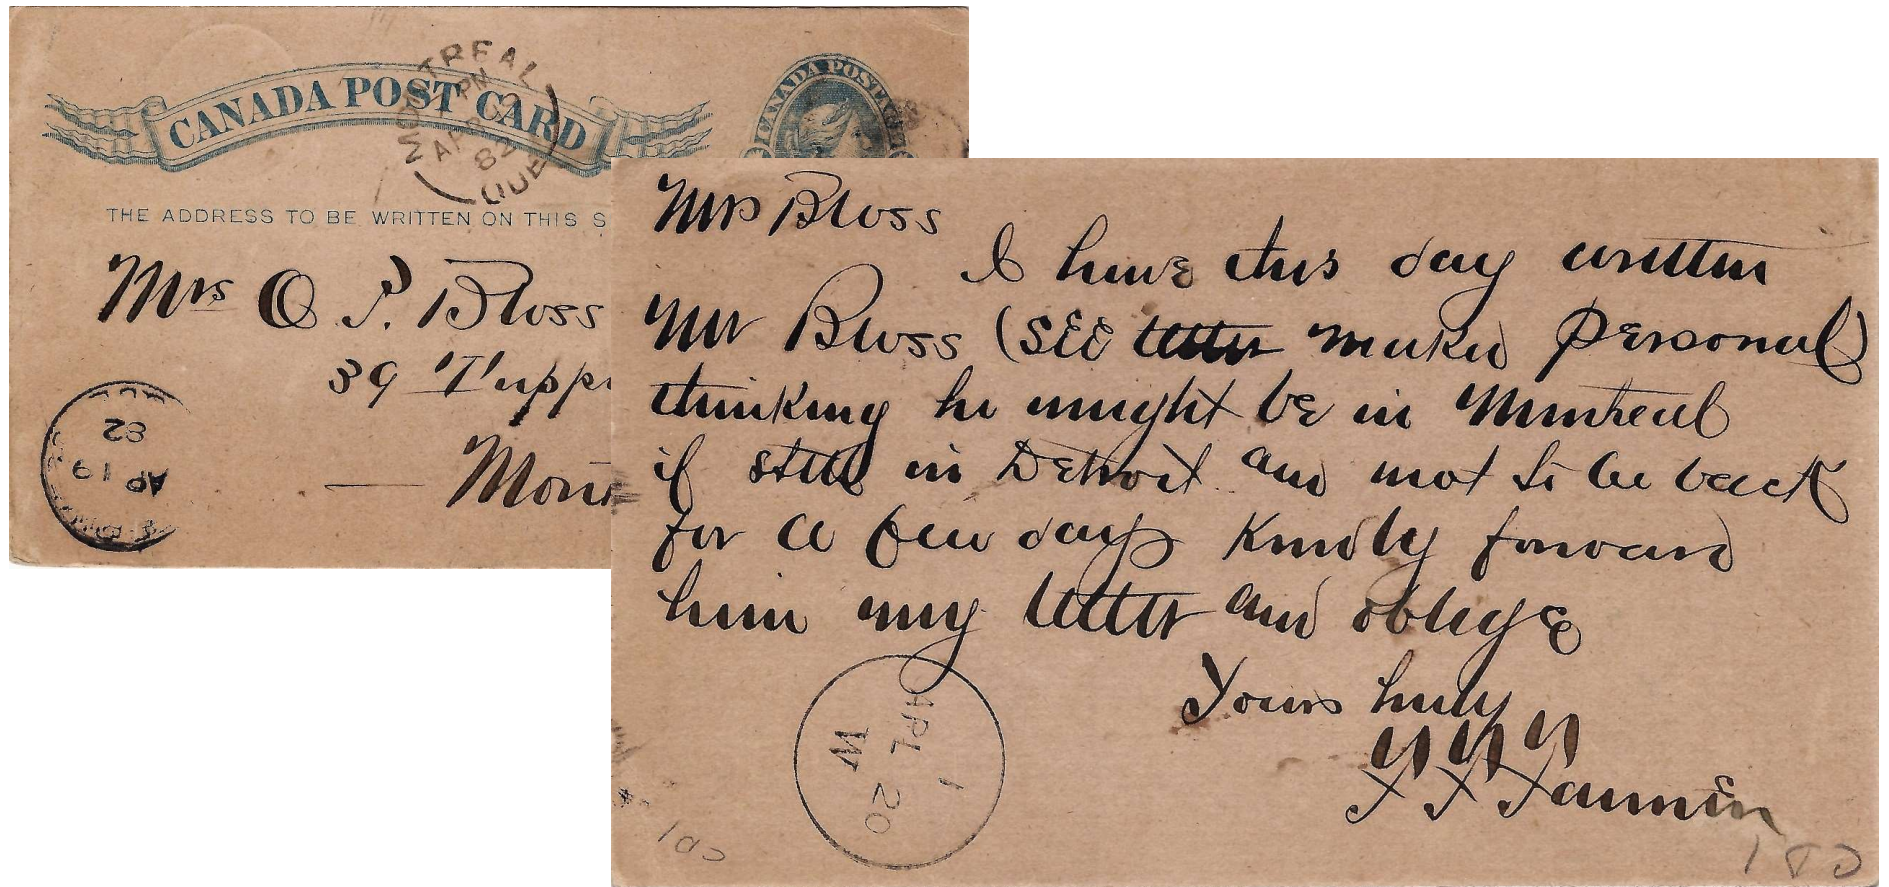 CANADA POST CARD
CANADA POSTAGE
MONTREAL
PM
AP
82
QUE
THE ADDRESS TO BE WRITTEN ON THIS S
Mrs O. S. Bloss
39 Tupp
Mont
AP 19
82
Mrs Bloss
I have this day written
Mr Bloss (see letter marked Personal)
thinking he might be in Montreal
if still in Detroit and not to be back
for a few days Kindly forward
him my letter and oblige
Yours truly
1
APL 20
W
180